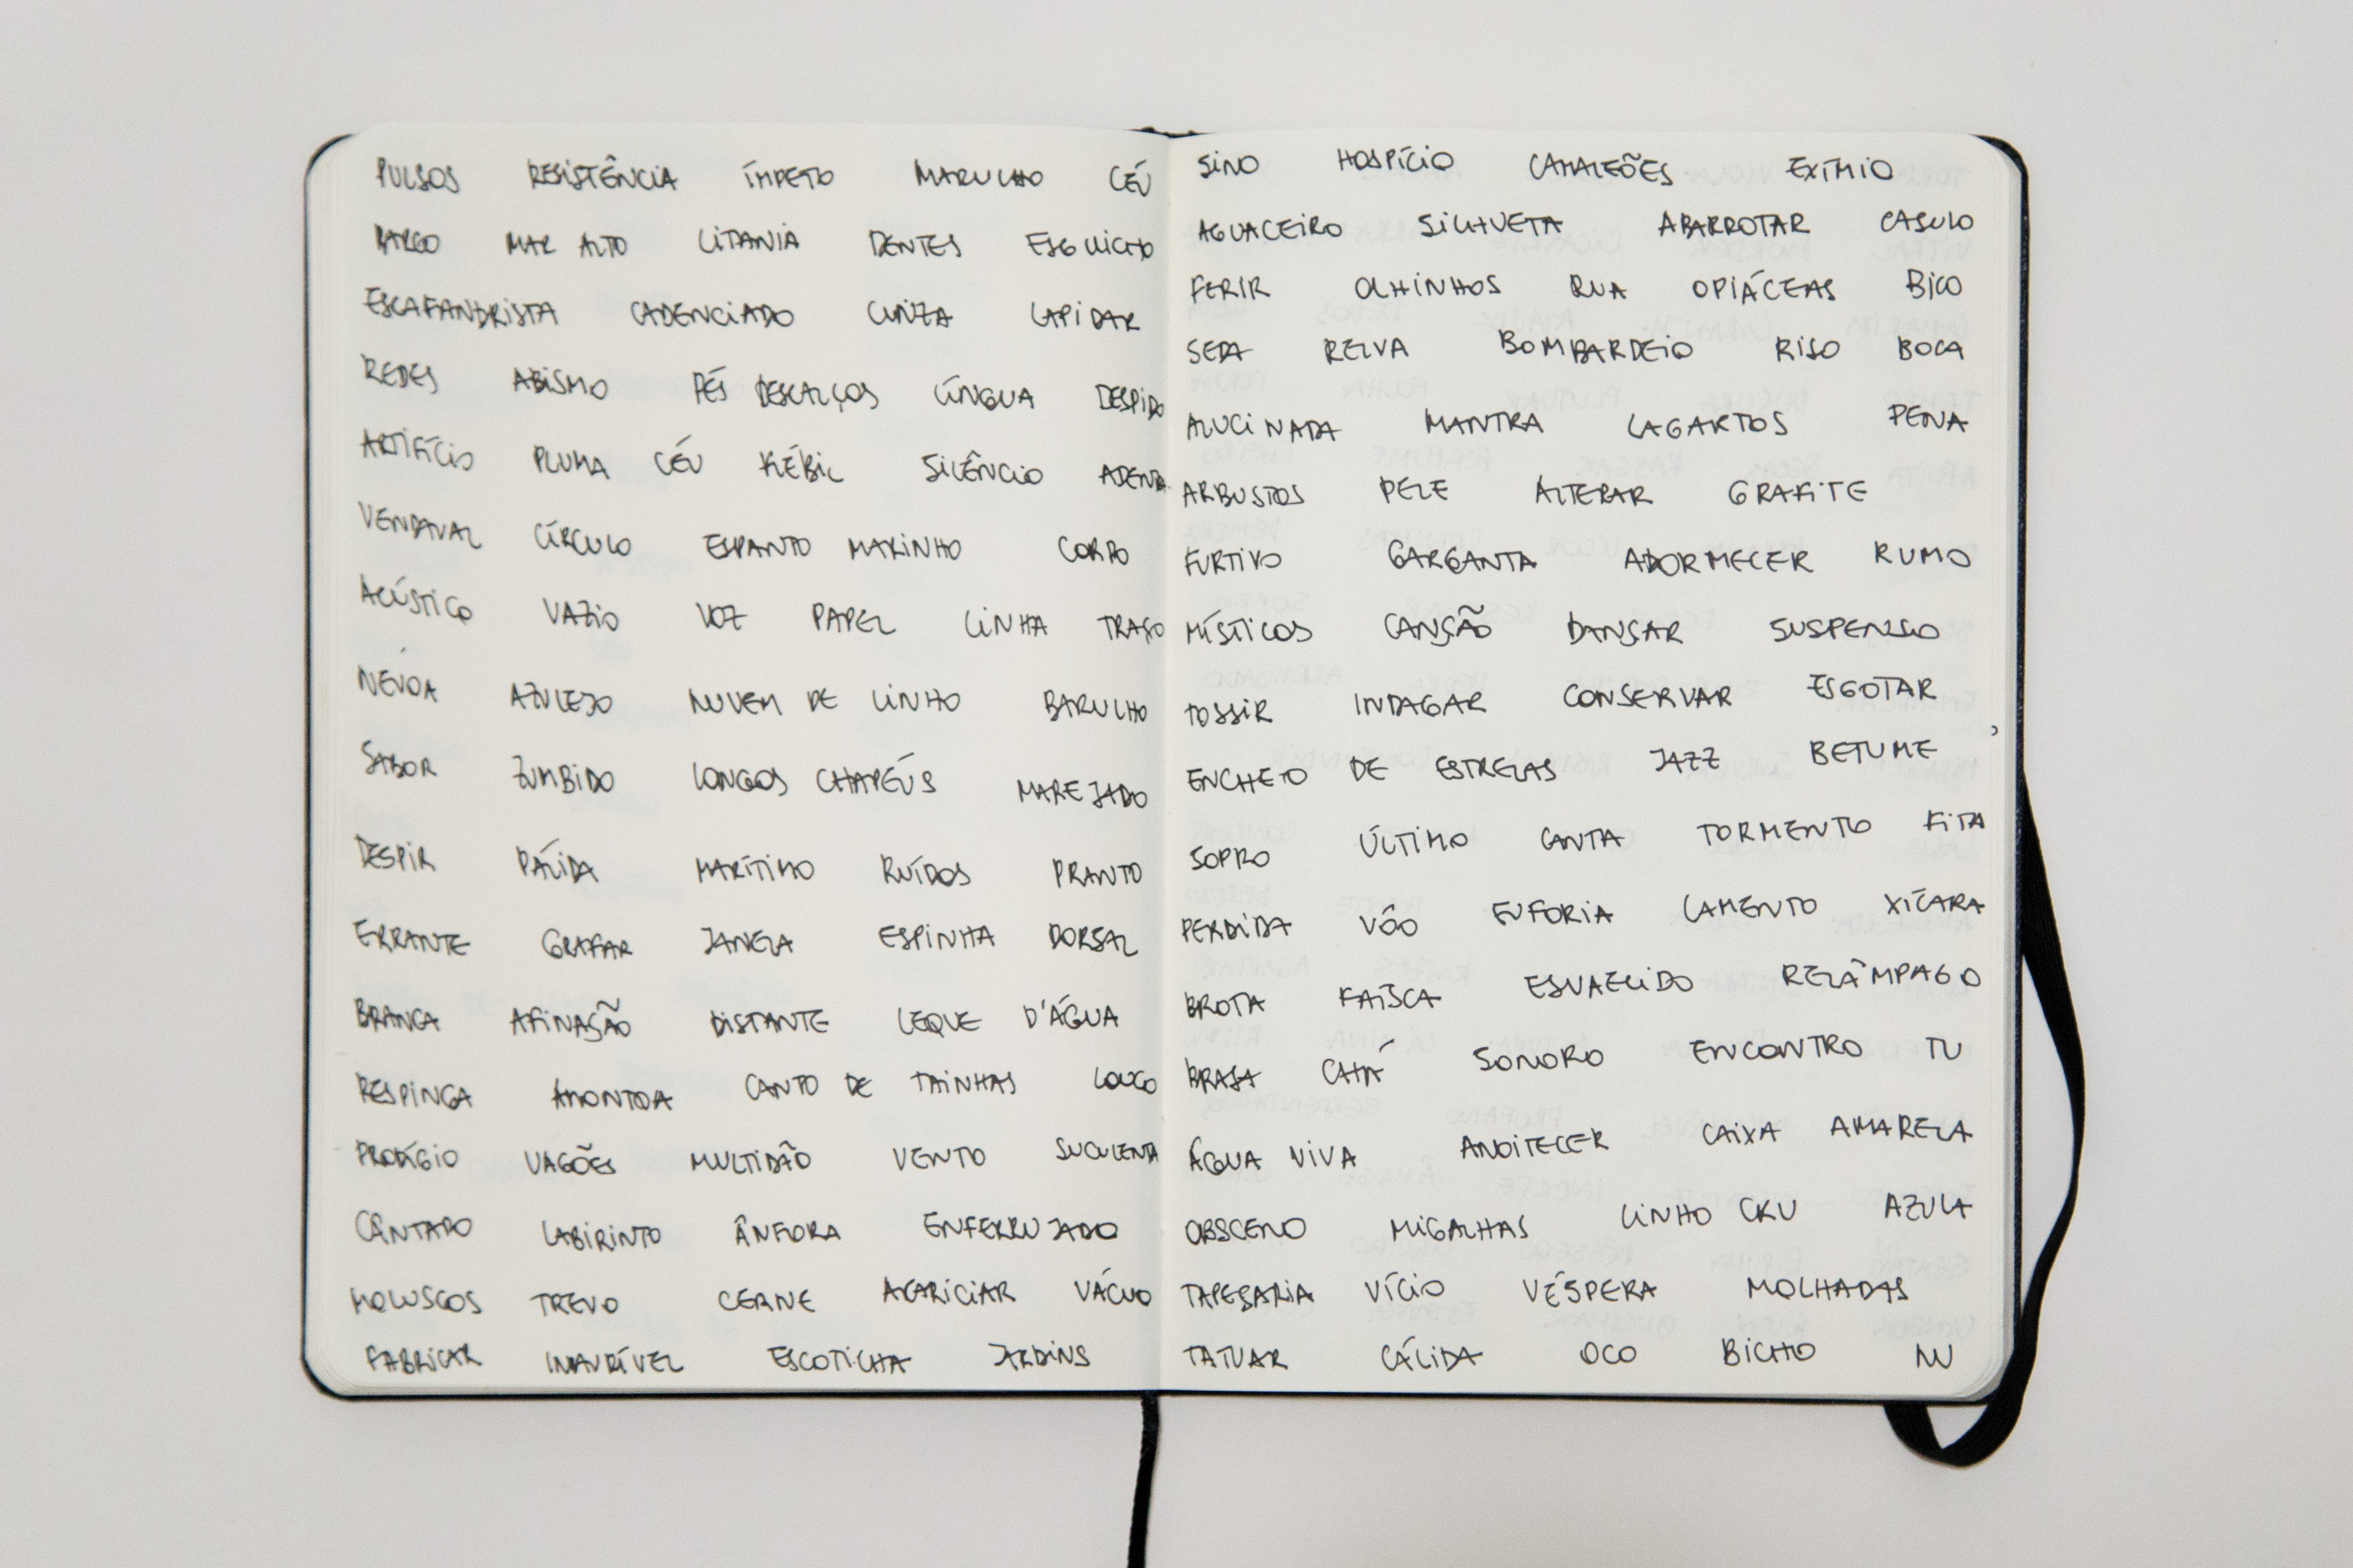 PULSOS RESISTÊNCIA ÍMPETO MARULHO CÉU
BARCO MAR ALTO LITANIA DENTES ESGUICHO
ESCAFANDRISTA CADENCIADO CINZA LAPIDAR
REDES ABISMO PÉS DESCALÇOS LÍNGUA DESPIDO
ARTIFÍCIO PLUMA CÉU FLÉBIL SILÊNCIO ADENTRA
VENDAVAL CÍRCULO ESPANTO MARINHO CORPO
ACÚSTICO VAZIO VOZ PAPEL LINHA TRAÇO
NÉVOA AZULEJO NUVEM DE LINHO BARULHO
SABOR ZUMBIDO LONGOS CHAPÉUS MAREJADO
DESPIR PÁLIDA MARÍTIMO RUÍDOS PRANTO
ERRANTE GRAFAR JANELA ESPINHA DORSAL
BRANCA AFINAÇÃO DISTANTE LEQUE D'ÁGUA
RESPINGA AMONTOA CANTO DE TAINHAS LOUCO
PRODÍGIO VAGÕES MULTIDÃO VENTO SUCULENTA
CÂNTARO LABIRINTO ÂNFORA ENFERRUJADO
MOLUSCOS TREVO CERNE ACARICIAR VÁCUO
FABRICAR INAUDÍVEL ESCOTILHA JARDINS
SINO HOSPÍCIO CAMALEÕES EXÍMIO
AGUACEIRO SILHUETA ABARROTAR CASULO
FERIR OLHINHOS RUA OPIÁCEAS BICO
SEDA RELVA BOMBARDEIO RISO BOCA
ALUCINADA MANTRA LAGARTOS PENA
ARBUSTOS PELE ALTERAR GRAFITE
FURTIVO GARGANTA ADORMECER RUMO
MÍSTICOS CANÇÃO DANÇAR SUSPENSO
TOSSIR INDAGAR CONSERVAR ESGOTAR
ENCHEIO DE ESTRELAS JAZZ BETUME
SOPRO ÚLTIMO CANTA TORMENTO FITA
PERDIDA VÔO EUFORIA LAMENTO XÍCARA
BROTA FAÍSCA ESVAECIDO RELÂMPAGO
BRASA CATÁ SONORO ENCONTRO TU
ÁGUA VIVA ANOITECER CAIXA AMARELA
OBSCENO MIGALHAS LINHO CRU AZULA
TAPEÇARIA VÍCIO VÉSPERA MOLHADAS
TATUAR CÁLIDA OCO BICHO NU